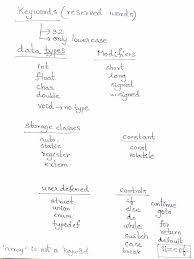 Keywords (reserved words)
→ 32
→ only lowercase
data types
int
float
char
double
void → no type
Modifiers
short
long
signed
unsigned
Storage classes
auto
static
register
extern
const
volatile
user defined
struct
union
enum
typedef
controls
if
else
do
while
switch
case
break
continue
goto
for
return
default
sizeof
'array' is not a keyword